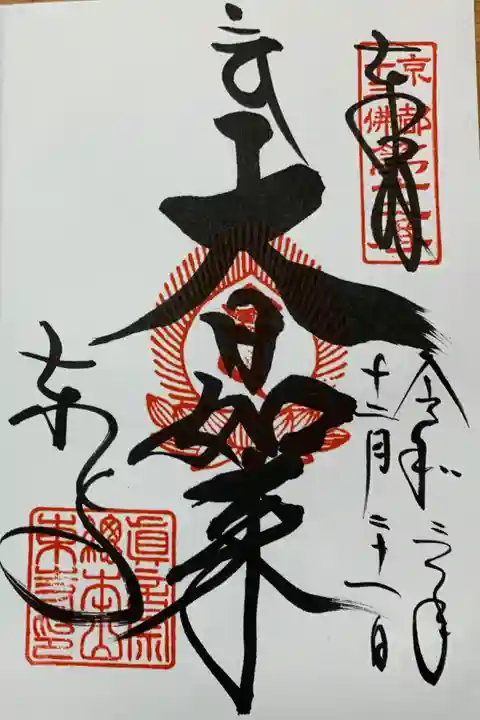 京都
十三佛第十二番
奉拝
令和三年
十一月二十一日
大日如来
東寺
眞言宗
總本山
東寺印